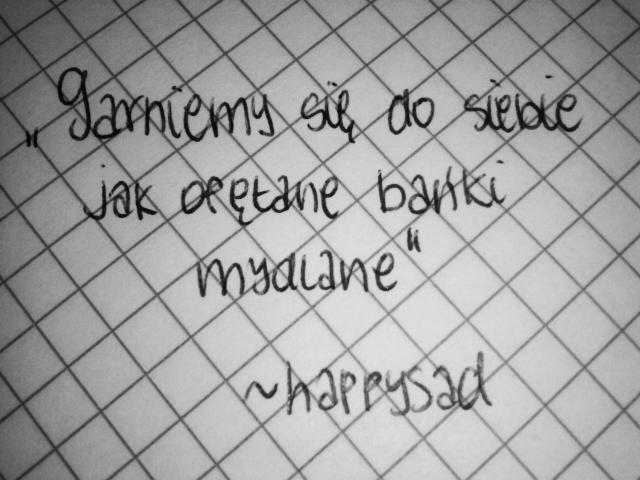 „Garniemy się do siebie
jak opętane bańki
mydlane"
~happysad